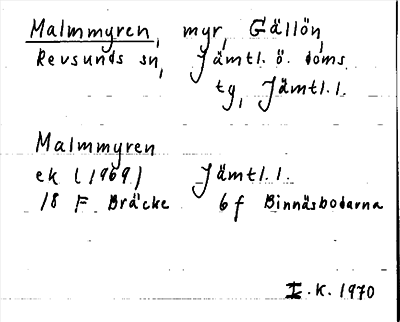 Malmmyren, myr, Gällön,
Revsunds sn, Jämtl. ö. doms.
tg, Jämtl. l.
Malmmyren
ek (1969) Jämtl. l.
18 F Bräcke 6 f Binnäsbodarna
I. K. 1970